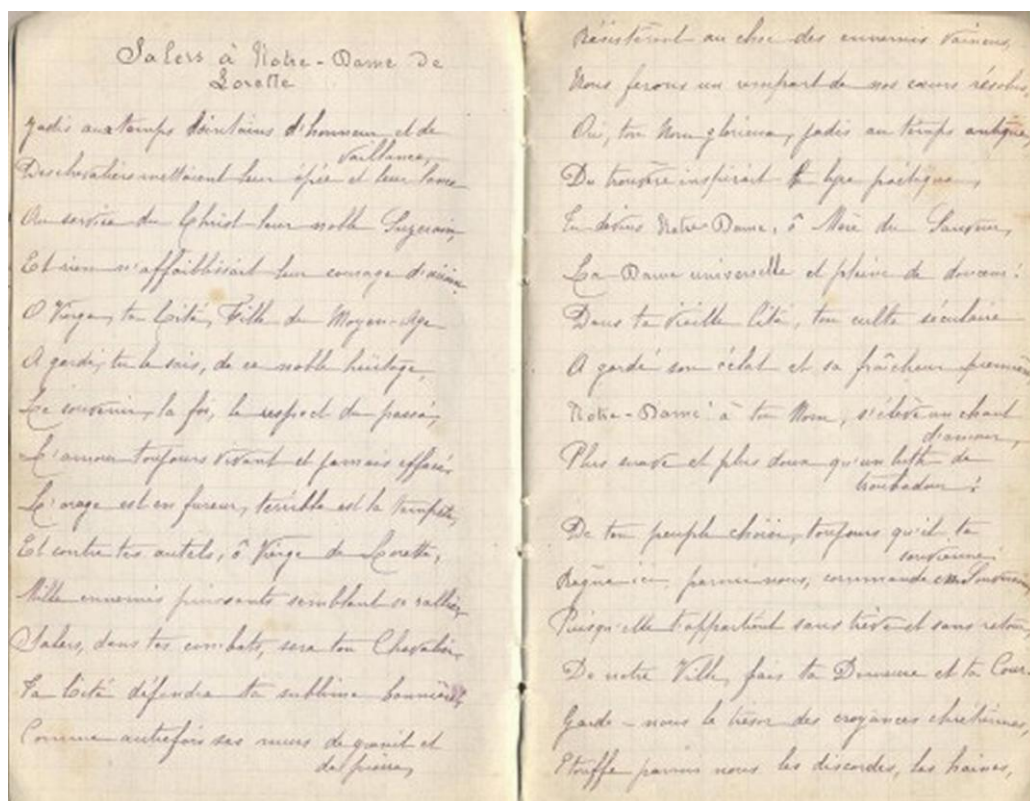 Salers à Notre-Dame de
Lorette
Jadis aux temps lointains d'honneur et de
vaillance,
Des chevaliers mettaient leur épée et leur lance
Au service du Christ leur noble Suzerain,
Et rien n'affaiblissait leur courage d'airain.
O Vierge, ta Cité, Fille du Moyen-Age
A gardé, tu le sais, de ce noble héritage,
Le souvenir, la foi, le respect du passé,
L'amour toujours vivant et jamais effacé.
L'orage est en fureur, terrible est la tempête,
Et contre tes autels, ô Vierge de Lorette,
Mille ennemis puissants semblent se rallier,
Salers, dans tes combats, sera ton Chevalier,
Ta Cité défendra ta sublime bannière,
Comme autrefois ses murs de granit et
de pierre,
Résistèrent au choc des ennemis vaincus,
Nous ferons un rempart de nos cœurs résolus,
Oui, ton Nom glorieux, jadis au temps antique,
Du trouvère inspirait la lyre poétique,
Tu devins Notre-Dame, ô Mère du Sauveur,
La Dame universelle et pleine de douceur!
Dans ta vieille Cité, ton culte séculaire
A gardé son éclat et sa fraîcheur première
Notre-Dame! à ton Nom, s'élève un chant
d'amour,
Plus suave et plus doux qu'un luth de
troubadour!
De ton peuple choisi, toujours qu'il te
souvienne!
Règne ici parmi nous, commande en Souveraine
Puisqu'elle t'appartient sans trève et sans retour
De notre Ville, fais ta Demeure et ta Cour.
Garde-nous le trésor des croyances chrétiennes,
Etouffe parmi nous les discordes, les haines,